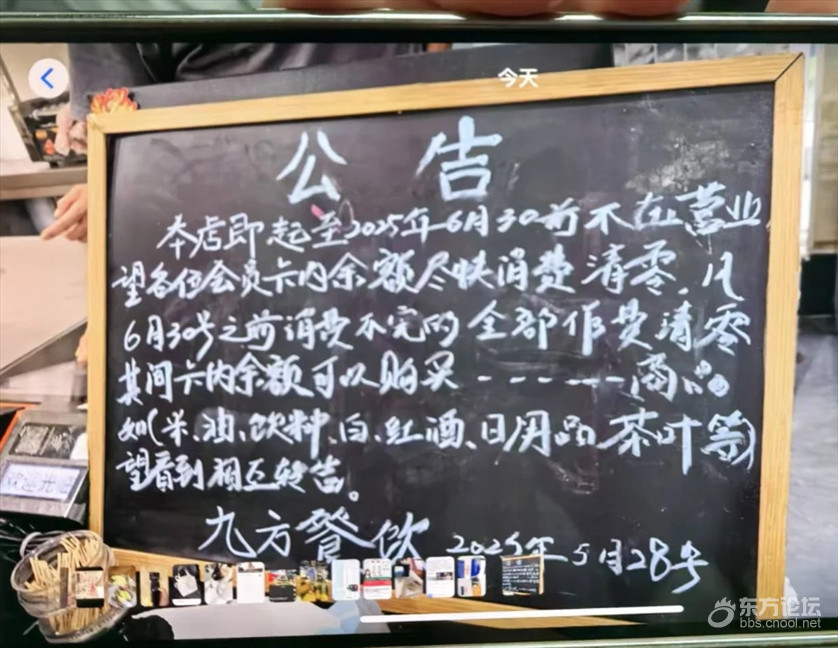 今天
公告
本店即起至2025年6月30前不在营业,
望各位会员卡内余额尽快消费清零.凡
6月30号之前消费不完的全部作费清零
其间卡内余额可以购买------商品。
如(米、油、饮料、白、红酒、日用品、茶叶等)
望看到相互转告。
九方餐饮 2025年5月28号
欢迎光临
东方论坛
bbs.cnool.net